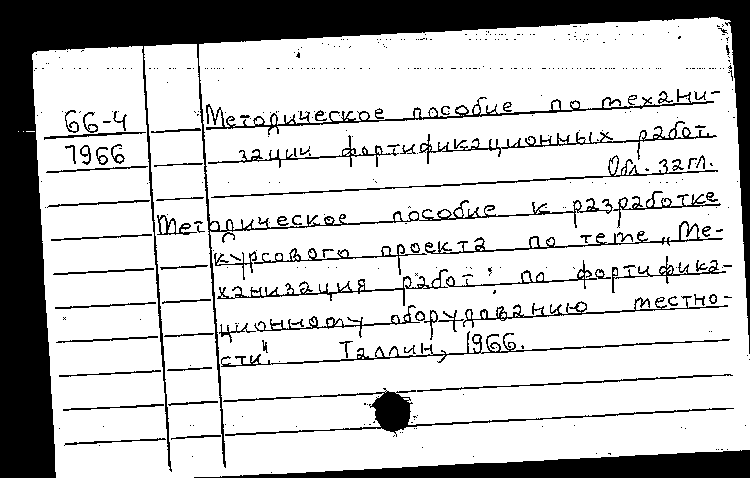 66-4
1966
Методическое пособие по механи-
зации фортификационных работ.
Обл. загл.
Методическое пособие к разработке
курсового проекта по теме „Ме-
ханизация работ по фортифика-
ционному оборудованию местно-
сти". Таллин, 1966.